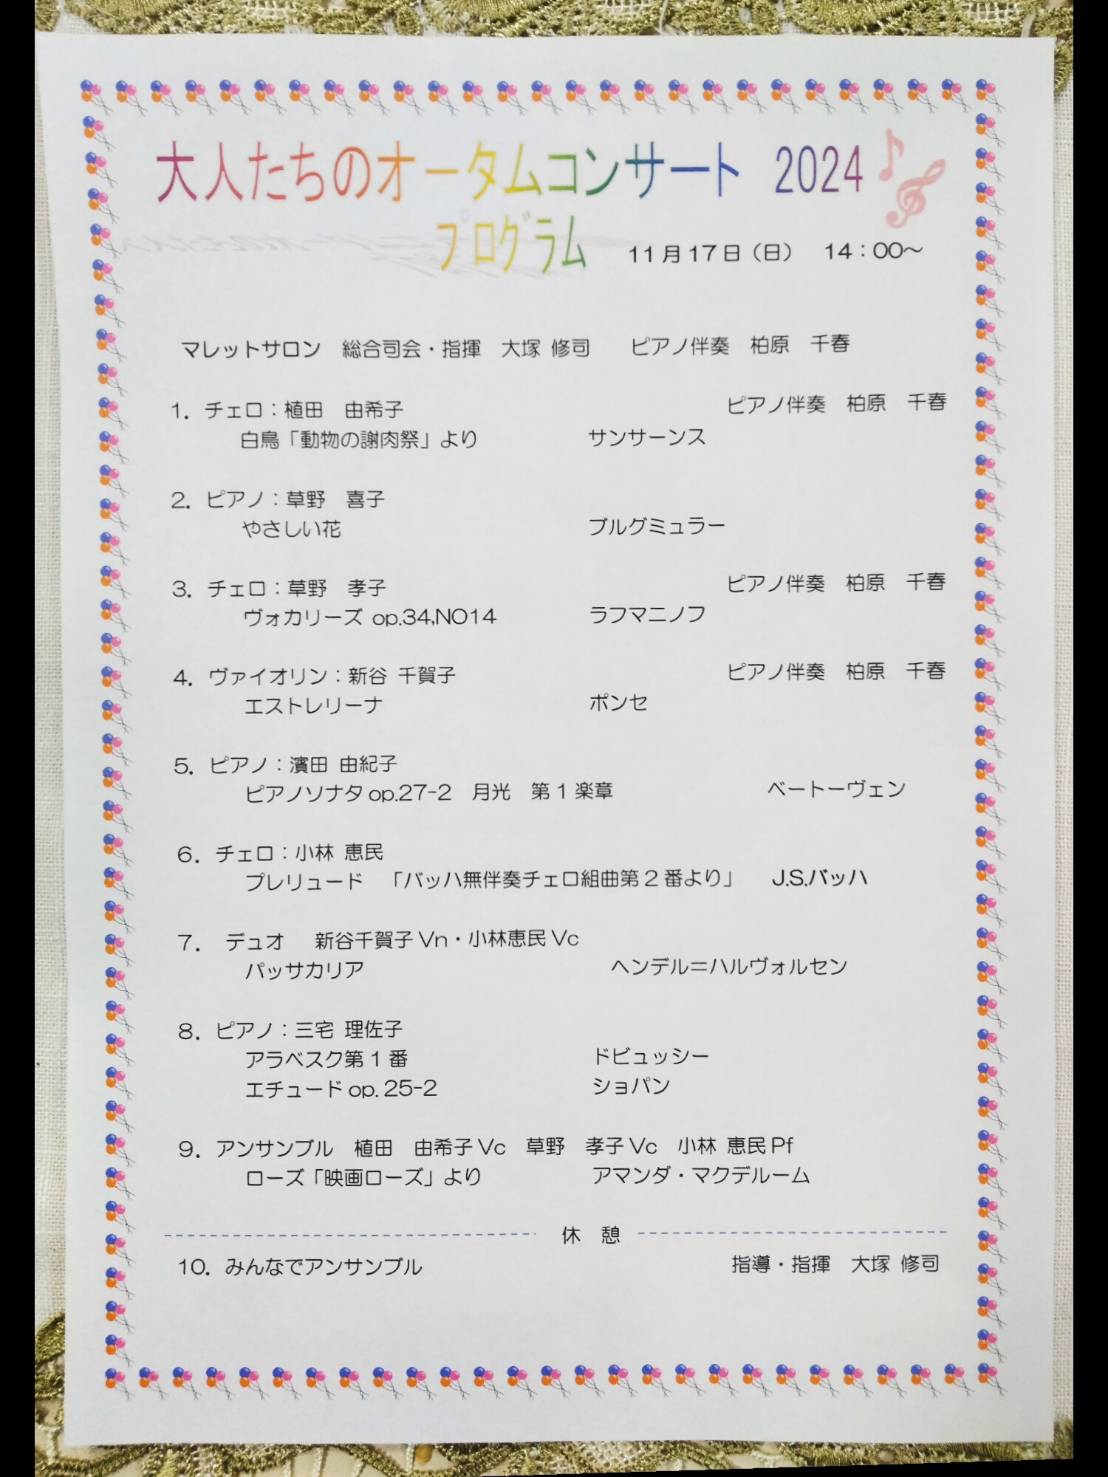 大人たちのオータムコンサート 2024
プログラム 11月17日(日) 14:00〜
マレットサロン 総合司会・指揮 大塚 修司 ピアノ伴奏 柏原 千春
1. チェロ:植田 由希子 ピアノ伴奏 柏原 千春
白鳥「動物の謝肉祭」より サンサーンス
2. ピアノ:草野 喜子
やさしい花 ブルグミュラー
3. チェロ:草野 孝子 ピアノ伴奏 柏原 千春
ヴォカリーズ op.34,NO14 ラフマニノフ
4. ヴァイオリン:新谷 千賀子 ピアノ伴奏 柏原 千春
エストレリーナ ポンセ
5. ピアノ:濱田 由紀子
ピアノソナタop.27-2 月光 第1楽章 ベートーヴェン
6. チェロ:小林 恵民
プレリュード 「バッハ無伴奏チェロ組曲第2番より」 J.S.バッハ
7. デュオ 新谷千賀子Vn・小林恵民Vc
パッサカリア ヘンデル=ハルヴォルセン
8. ピアノ:三宅 理佐子
アラベスク第1番 ドビュッシー
エチュードop. 25-2 ショパン
9. アンサンブル 植田 由希子Vc 草野 孝子Vc 小林 恵民Pf
ローズ「映画ローズ」より アマンダ・マクデルーム
休 憩
10. みんなでアンサンブル 指導・指揮 大塚 修司